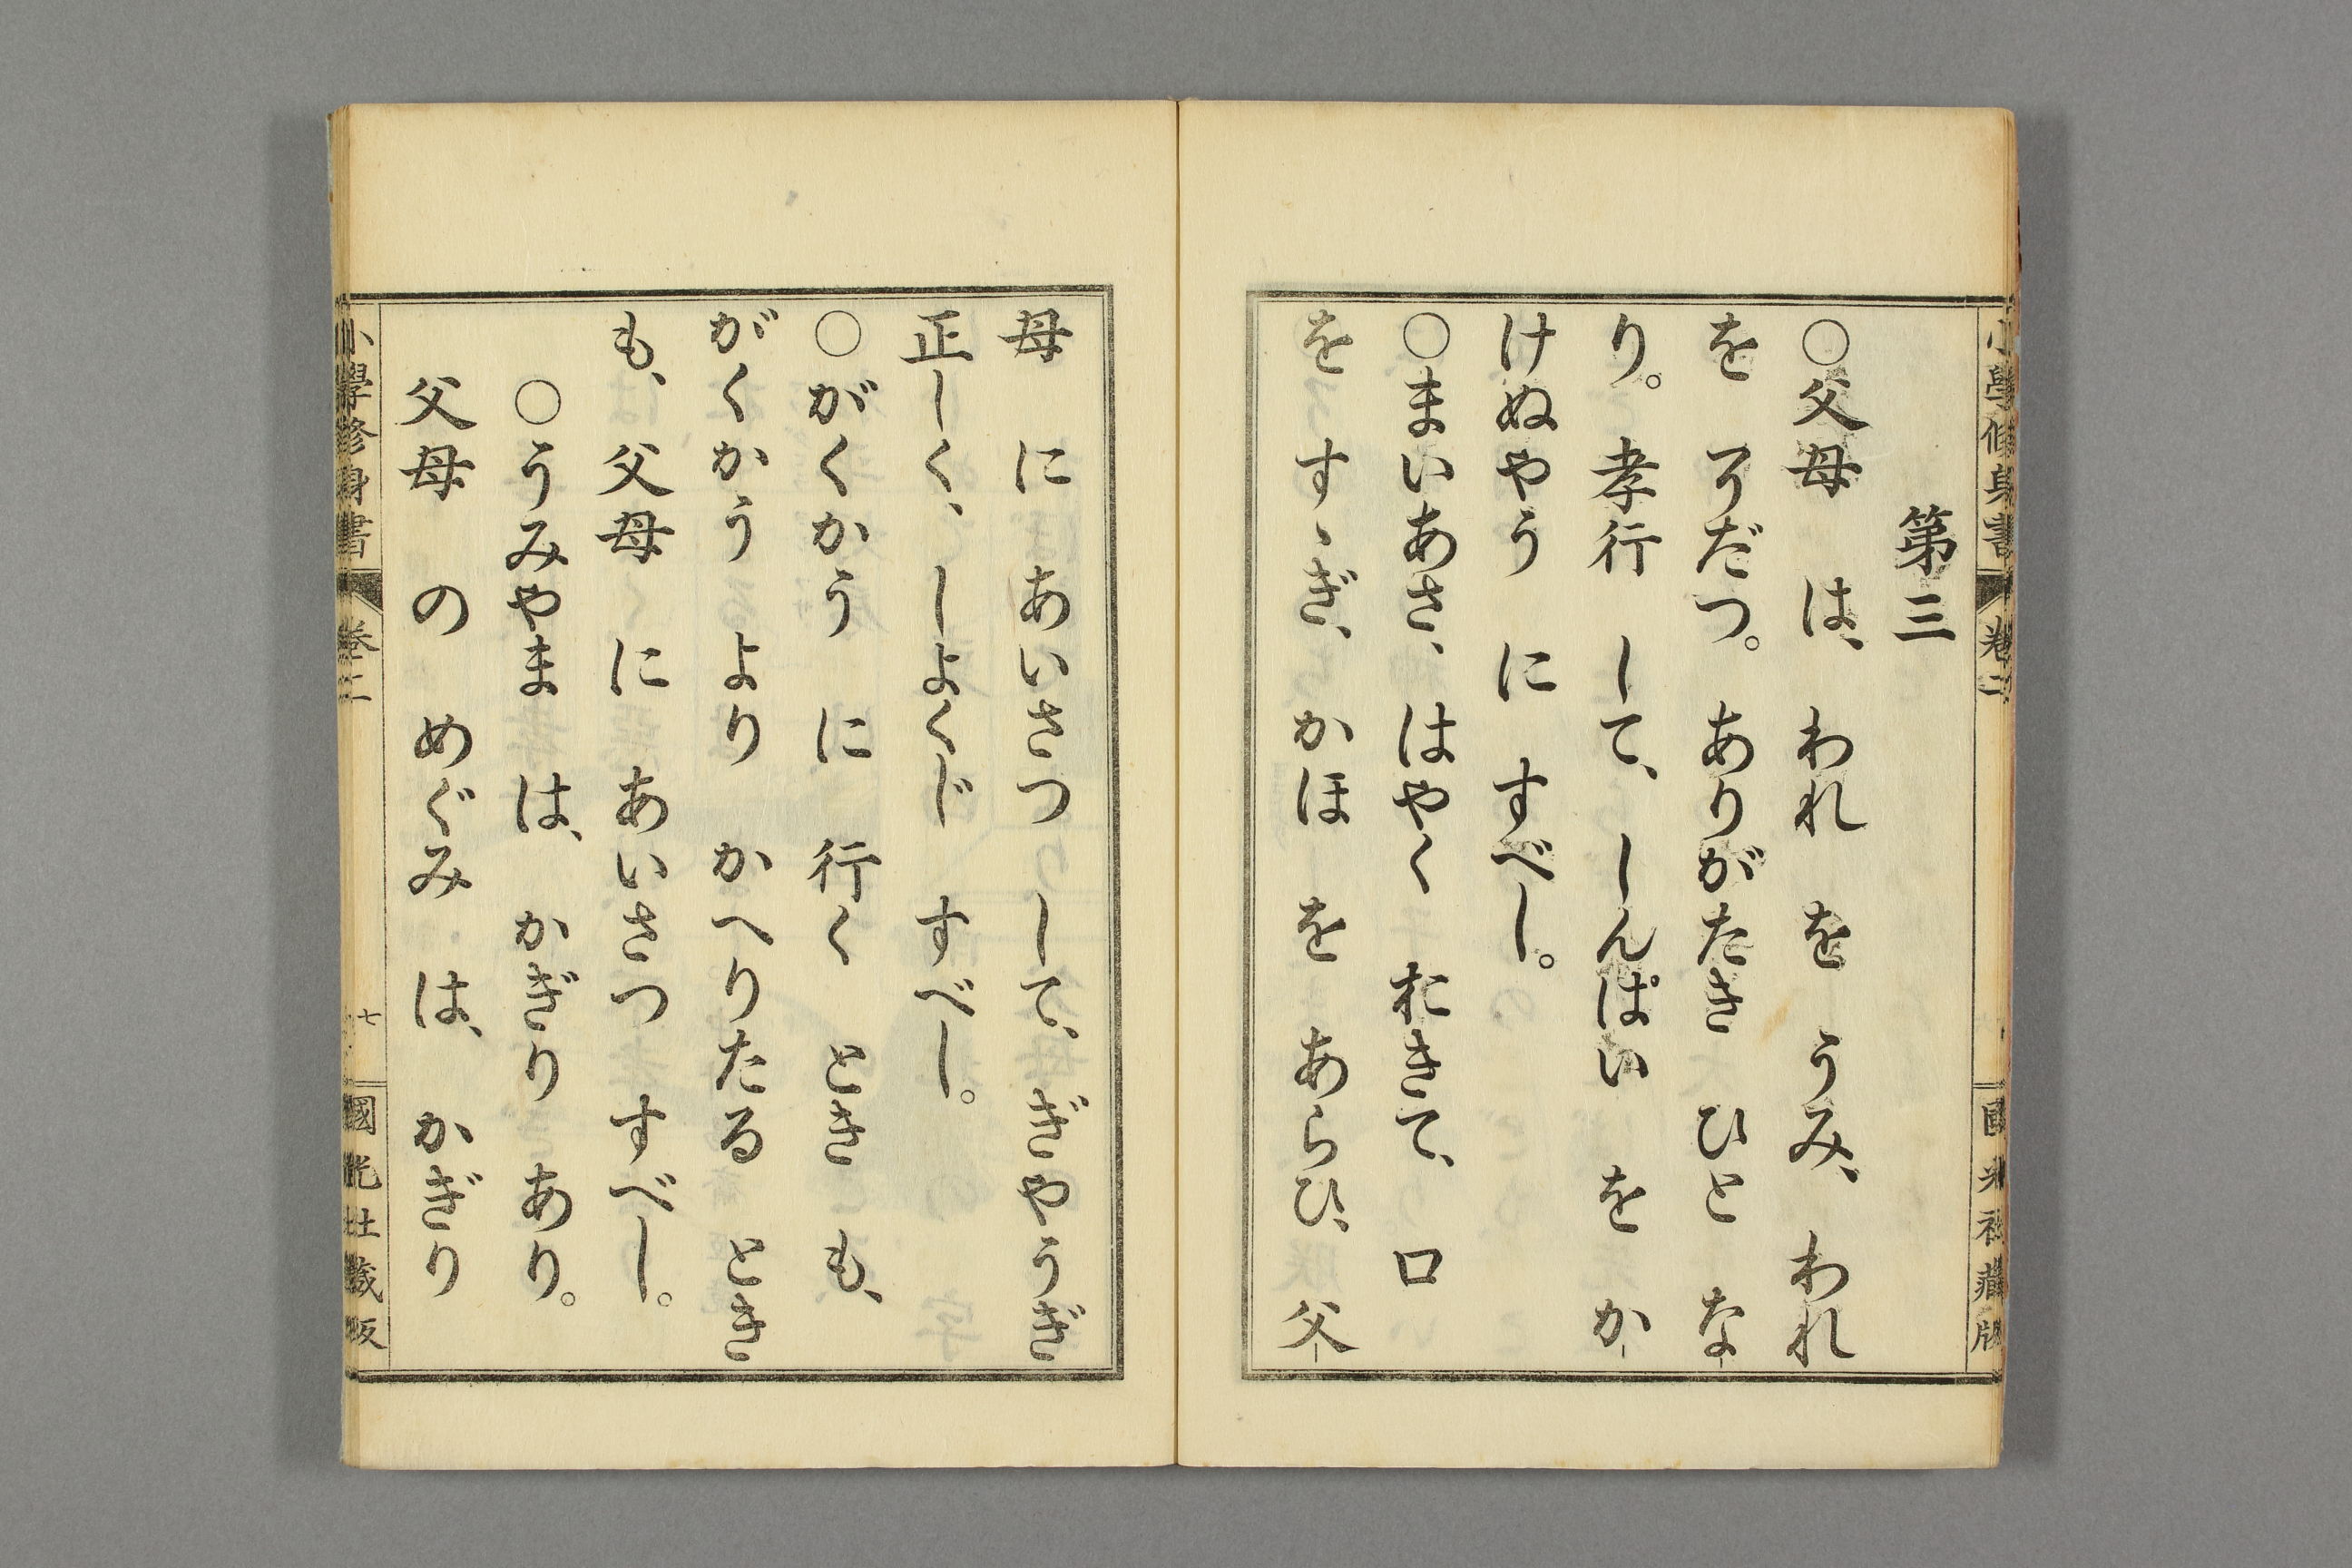 小學修身書 卷二 國光社藏版
第三
○父母 は、 われ を うみ、 われ
を そだつ。 ありがたき ひと な
り。 孝行 して、 しんぱい を か
けぬやう に すべし。
○まいあさ、 はやく おきて、 口
を すゝぎ、 かほ を あらひ、 父
母 に あいさつ して、 ぎやうぎ
正しく、 しよくじ すべし。
○がくかう に 行く とき も、
がくかう より かへりたる とき
も、 父母 に あいさつ すべし。
○うみやま は、 かぎり あり。
父母 の めぐみ は、 かぎり
小學修身書 卷二 七 國光社藏版